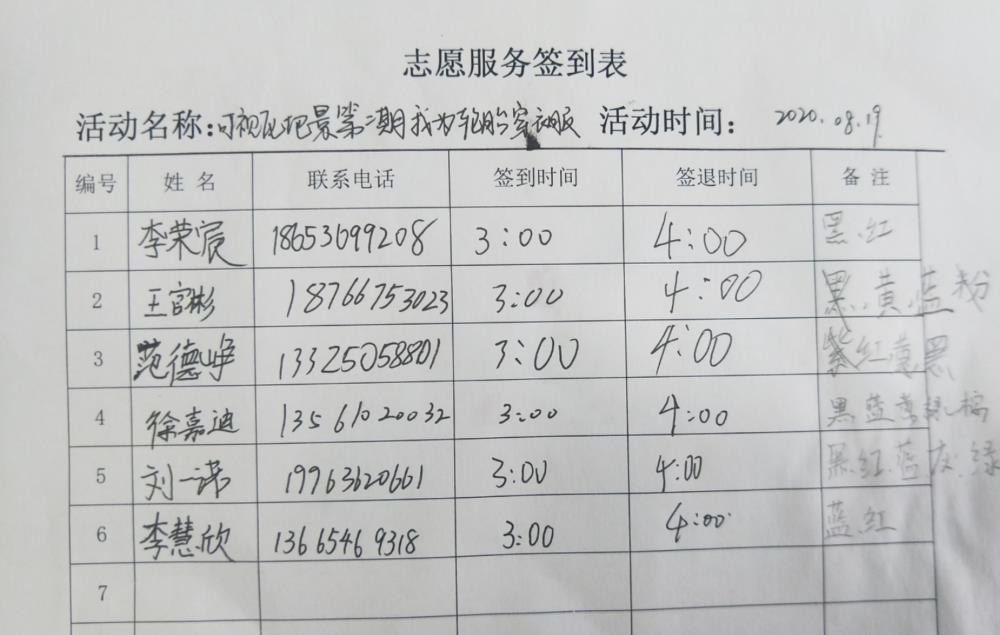 志愿服务签到表
活动名称：可视化把景第二期我为轮胎穿衣服 活动时间：2020.08.19
编号 姓名 联系电话 签到时间 签退时间 备注
1 李荣宸 18653699208 3:00 4:00 黑.红
2 王官彬 18766753023 3:00 4:00 黑.黄.蓝粉
3 范德峥 13325058801 3:00 4:00 紫红黄黑
4 徐嘉迪 13561020032 3:00 4:00 黑蓝黄橘
5 刘一诺 19963620661 3:00 4:00 黑红.蓝灰.绿
6 李慧欣 13665469318 3:00 4:00 蓝红
7